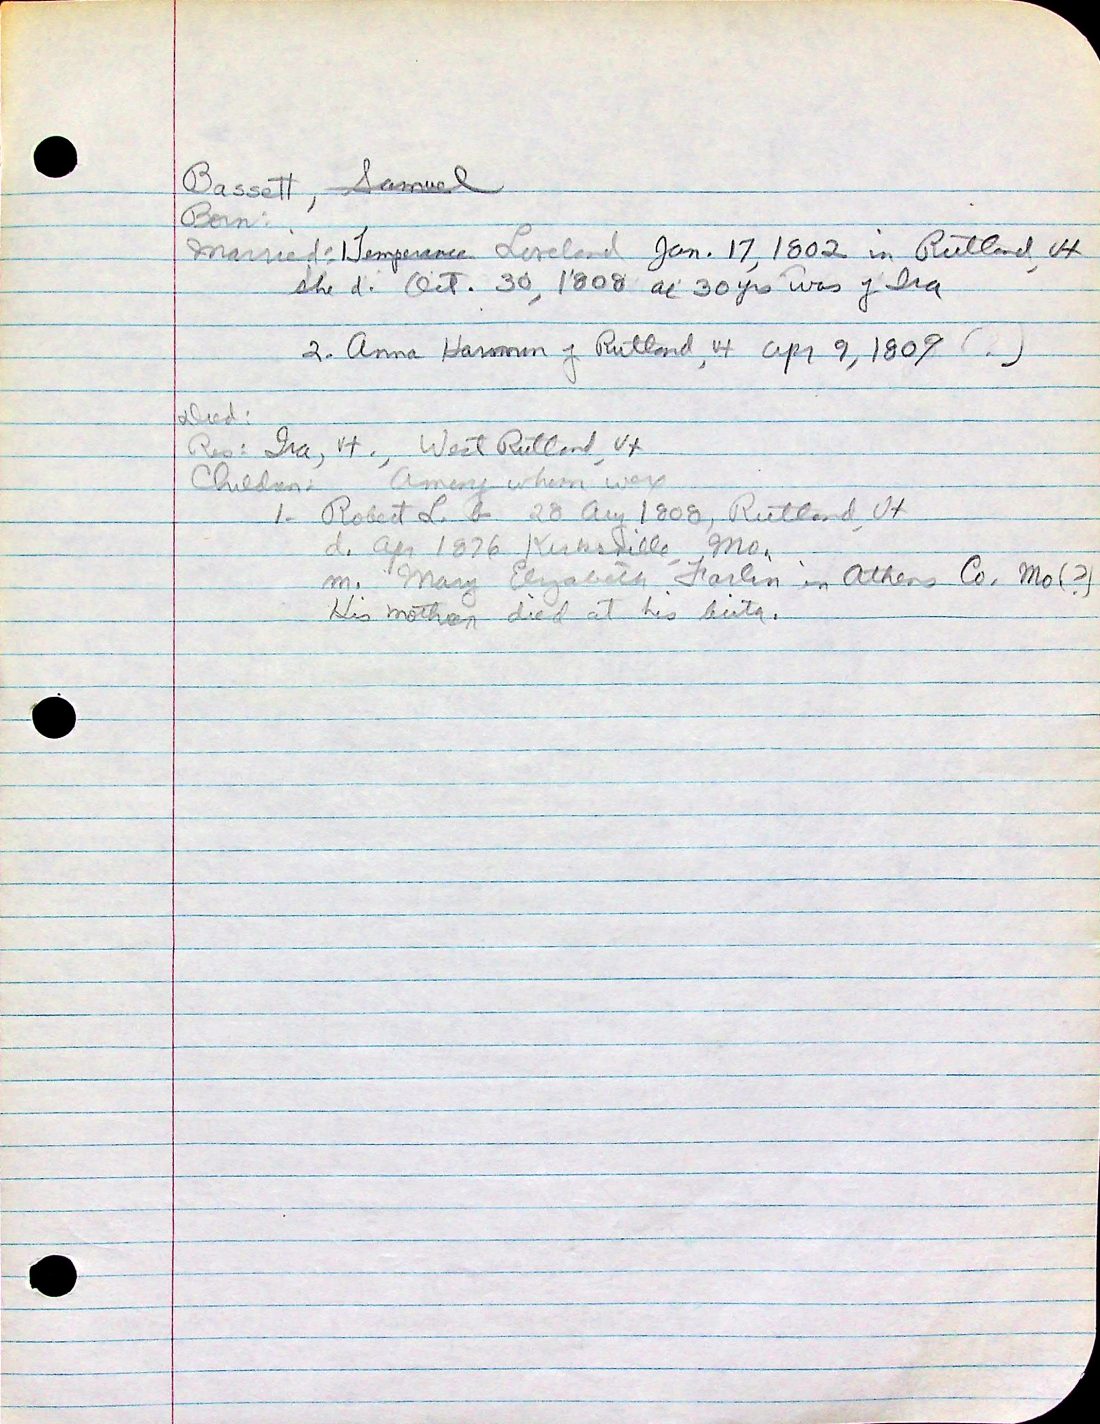 Bassett, Samuel
Born:
Married: 1 Temperance Loveland Jan. 17, 1802 in Rutland, Vt
she d. Oct. 30, 1808 ae 30 yrs was of Ira
2. Anna Harmon of Rutland, Vt Apr 9, 1809 (?)
Died:
Res: Ira, Vt., West Rutland, Vt
Children: Among whom were
1- Robert L. b 28 Aug 1808, Rutland, Vt
d. Apr 1876 Kirksville, Mo.
m. Mary Elizabeth Farlin in Athens Co. Mo (?)
His mother died at his birth.